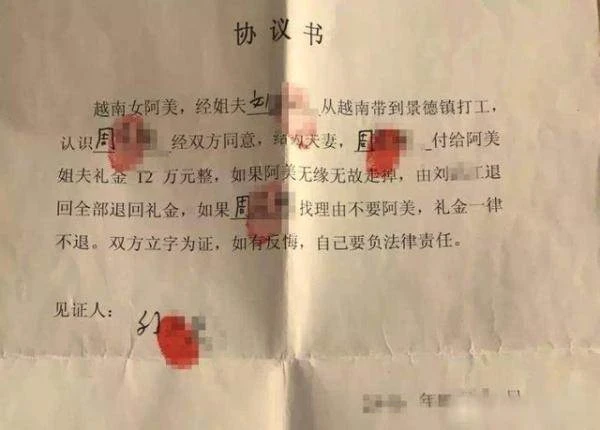 协议书
越南女阿美，经姐夫刘 从越南带到景德镇打工，
认识周 经双方同意，结为夫妻，周 付给阿美
姐夫礼金 12 万元整，如果阿美无缘无故走掉，由刘 江退
回全部退回礼金，如果周 找理由不要阿美，礼金一律
不退。双方立字为证，如有反悔，自己要负法律责任。
见证人：
年